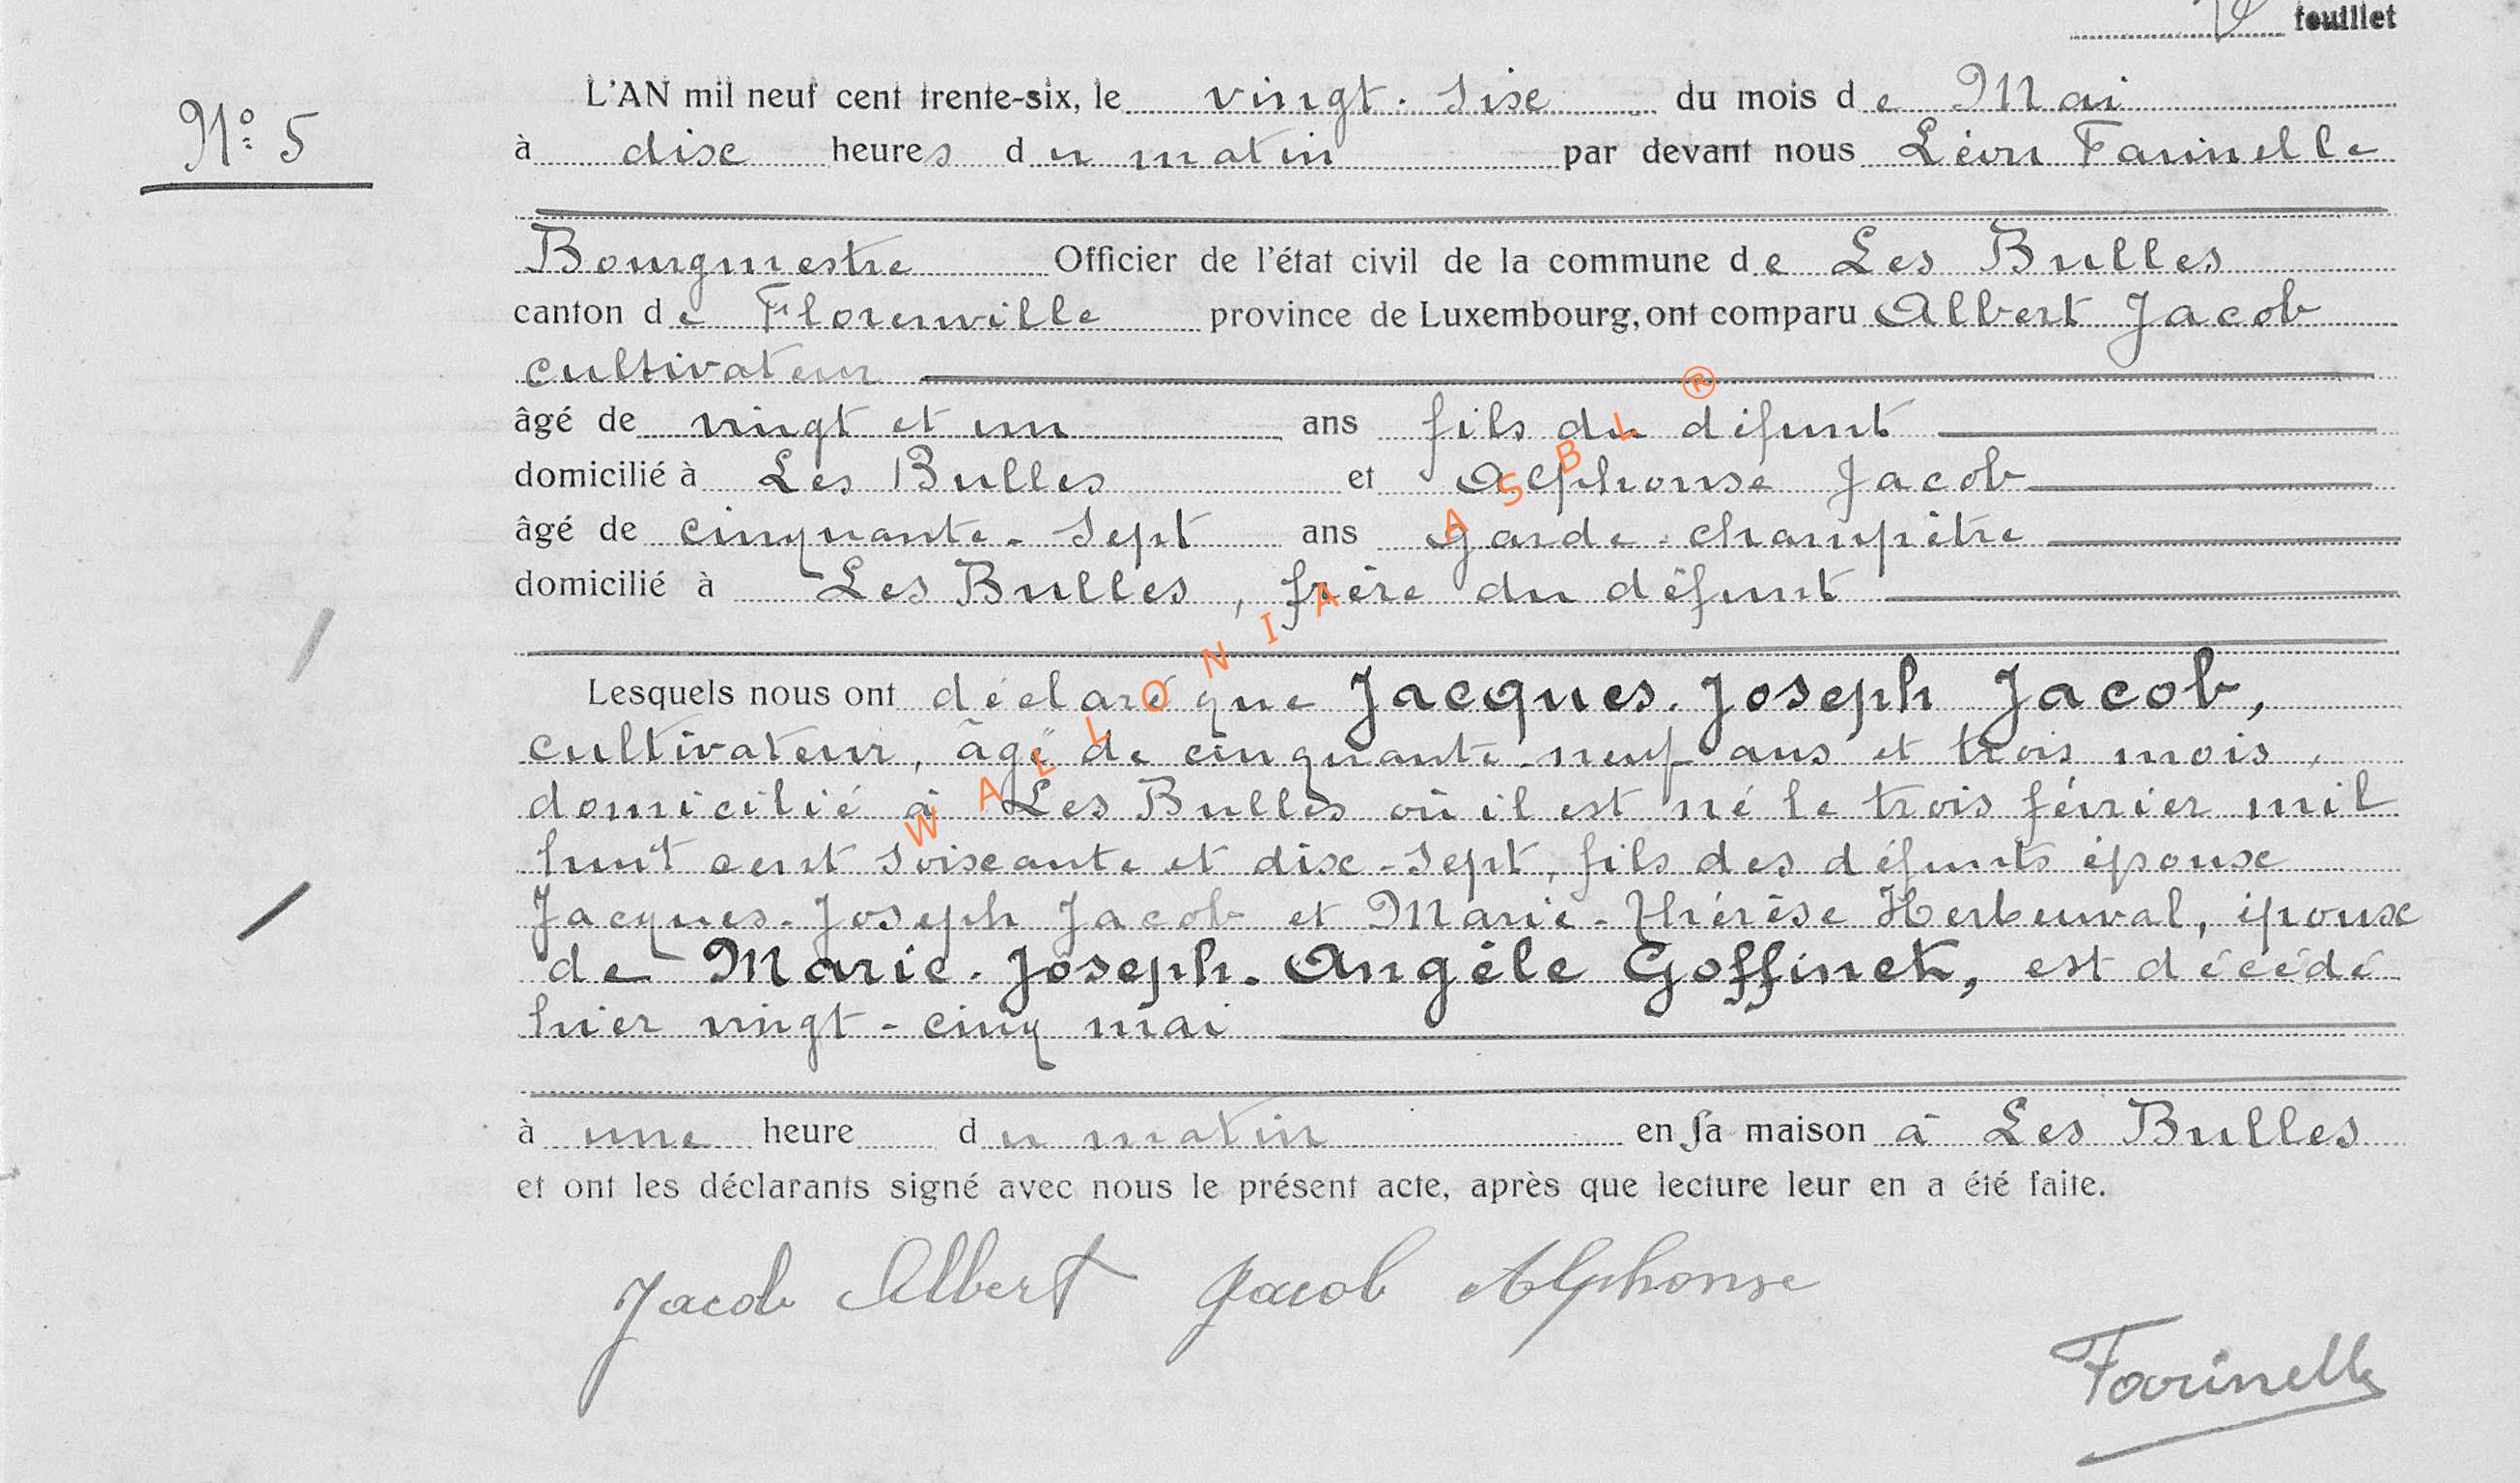 feuillet
N° 5
L'AN mil neuf cent trente-six, le vingt-six du mois de Mai
à dix heures du matin par devant nous Léon Farinelle
Bourgmestre Officier de l'état civil de la commune de Les Bulles
canton de Florenville province de Luxembourg, ont comparu Albert Jacob
cultivateur
âgé de vingt et un ans fils du défunt
domicilié à Les Bulles et Alphonse Jacob
âgé de cinquante-sept ans garde-champêtre
domicilié à Les Bulles, frère du défunt
Lesquels nous ont déclaré que Jacques-Joseph Jacob,
cultivateur, âgé de cinquante-neuf ans et trois mois,
domicilié à Les Bulles où il est né le trois février mil
huit cent soixante et dix-sept, fils des défunts époux
Jacques-Joseph Jacob et Marie-Thérèse Herbeuval, époux
de Marie-Joseph-Angèle Goffinet, est décédé
hier vingt-cinq mai
à une heure du matin en sa maison à Les Bulles
et ont les déclarants signé avec nous le présent acte, après que lecture leur en a été faite.
Jacob Albert Jacob Alphonse
Farinelle
WALLONIA ASBL ®